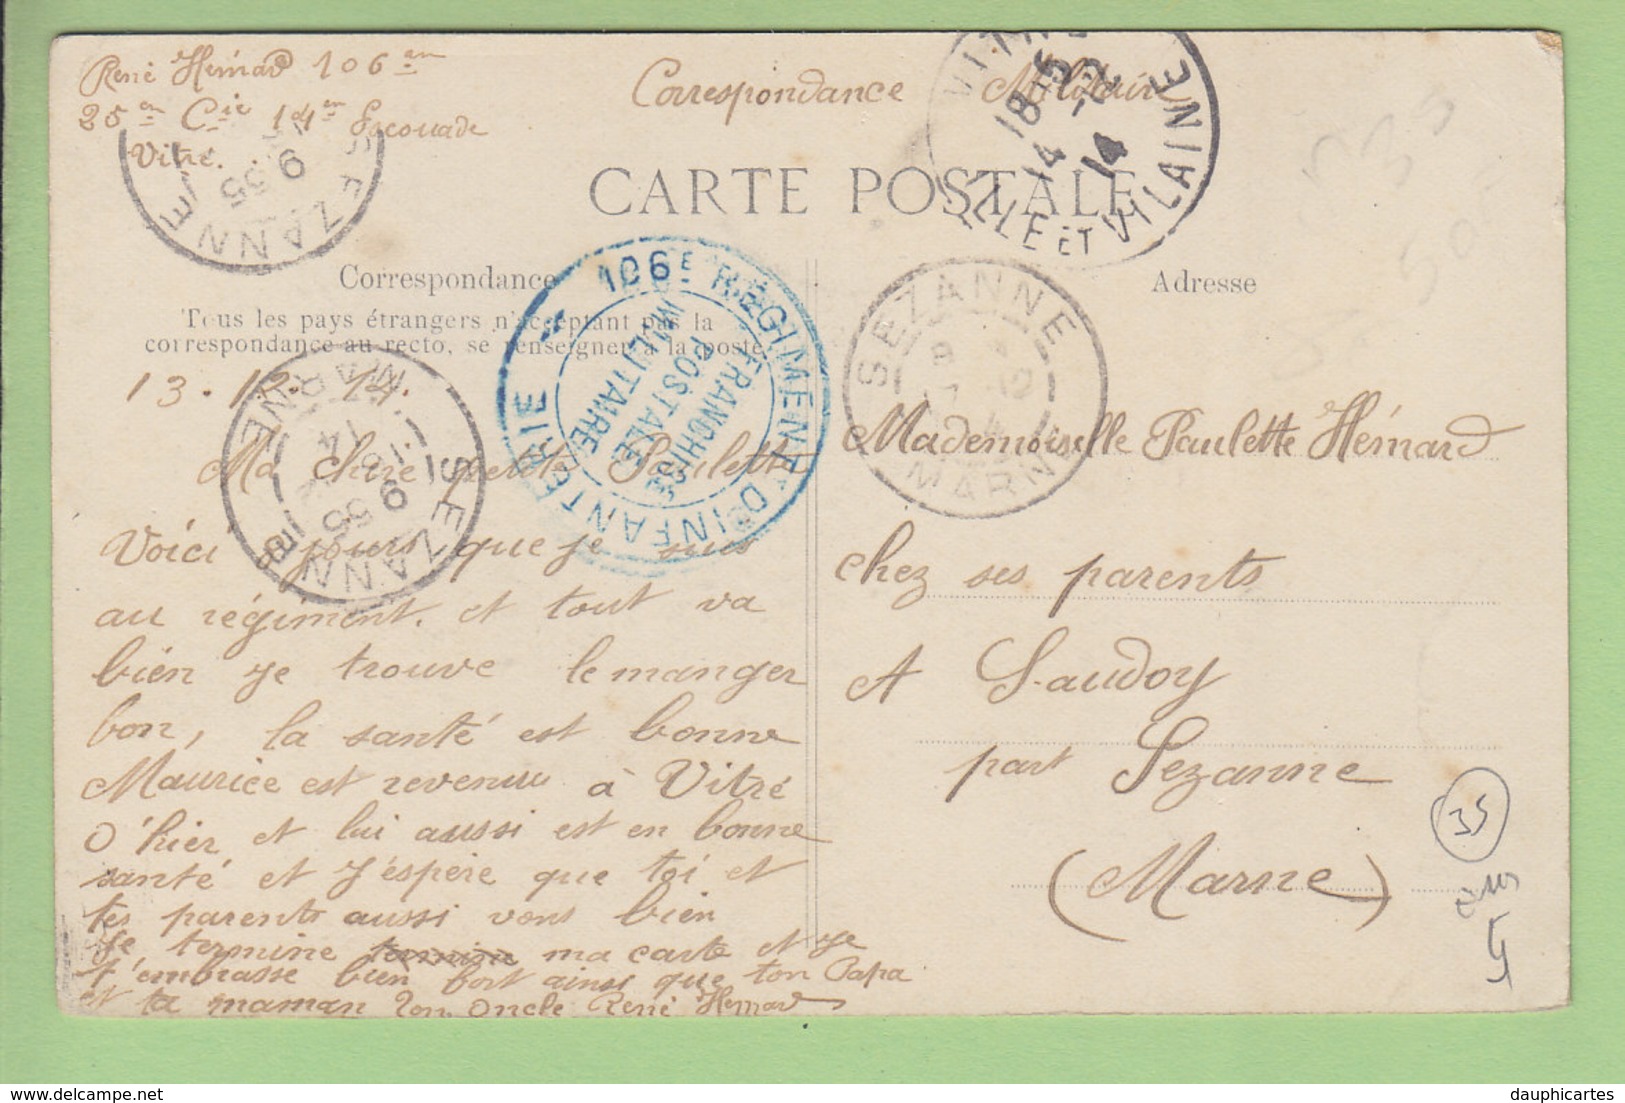 René Hémard 106em
25em Cie 14em Escouade
Vitré.
Correspondance Militaire
CARTE POSTALE
Correspondance
Adresse
Tous les pays étrangers n'acceptent pas la
correspondance au recto, se renseigner à la poste
13.12.14.
Ma chère petite Paulette
Voici jours que je suis
au régiment. et tout va
bien je trouve le manger
bon, la santé est bonne
Maurice est revenu à Vitré
d'hier et lui aussi est en bonne
santé et j'éspère que toi et
tes parents aussi vont bien
Je termine termine ma carte et je
t'embrasse bien fort ainsi que ton Papa
et ta maman Ton Oncle René Hémard
Mademoiselle Paulette Hémard
chez ses parents
A Saudoy
part Sezanne
(Marne)
35
5
SEZANNE
9 35
VITRÉ
18 15
14 -12
14
ILLE ET VILAINE
106E RÉGIMENT D'INFANTERIE
FRANCHISE
POSTALE
MILITAIRE
SEZANNE
MARNE
SEZANNE
MARNE
9 35
14
dauphicartes